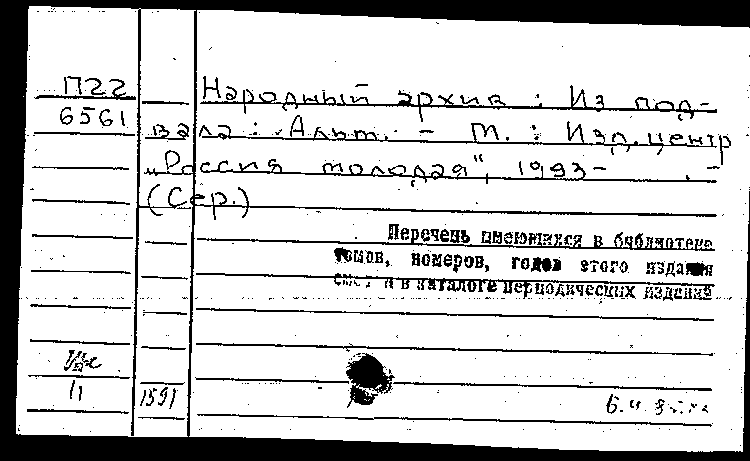 П22
6561
Народный архив : Из под-
вала : Альм. – М. : Изд. центр
„Россия молодая", 1993–     . –
(Сер.)
Перечень имеющихся в библиотеке
томов, номеров, годов этого издания
в каталоге периодических изданий
11
1591